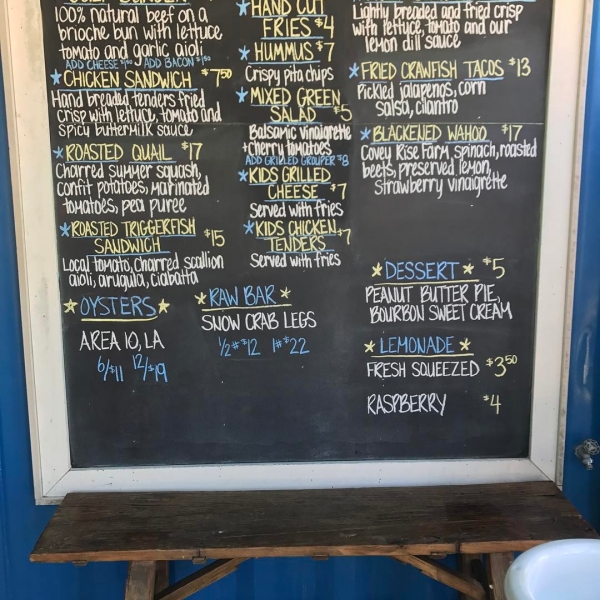 100% natural beef on a
brioche bun with lettuce
tomato and garlic aioli
ADD CHEESE ADD BACON
CHICKEN SANDWICH $7.50
Hand breaded tenders fried
crisp with lettuce, tomato and
spicy buttermilk sauce
ROASTED QUAIL $17
Charred summer squash,
confit potatoes, marinated
tomatoes, pea puree
ROASTED TRIGGERFISH
SANDWICH $15
Local tomato, charred scallion
aioli, arugula, ciabatta
OYSTERS
AREA 10, LA
6/$11 12/$19
HAND CUT
FRIES $4
HUMMUS $7
Crispy pita chips
MIXED GREEN
SALAD $5
Balsamic vinaigrette
+ cherry tomatoes
ADD GRILLED GROUPER $8
KIDS GRILLED
CHEESE $7
Served with fries
KIDS CHICKEN
TENDERS $7
Served with fries
RAW BAR
SNOW CRAB LEGS
1/2# $12 1# $22
Lightly breaded and fried crisp
with lettuce, tomato and our
lemon dill sauce
FRIED CRAWFISH TACOS $13
Pickled jalapenos, corn
salsa, cilantro
BLACKENED WAHOO $17
Covey Rise Farm, spinach, roasted
beets, preserved lemon,
strawberry vinaigrette
DESSERT $5
PEANUT BUTTER PIE,
BOURBON SWEET CREAM
LEMONADE
FRESH SQUEEZED $3.50
RASPBERRY $4